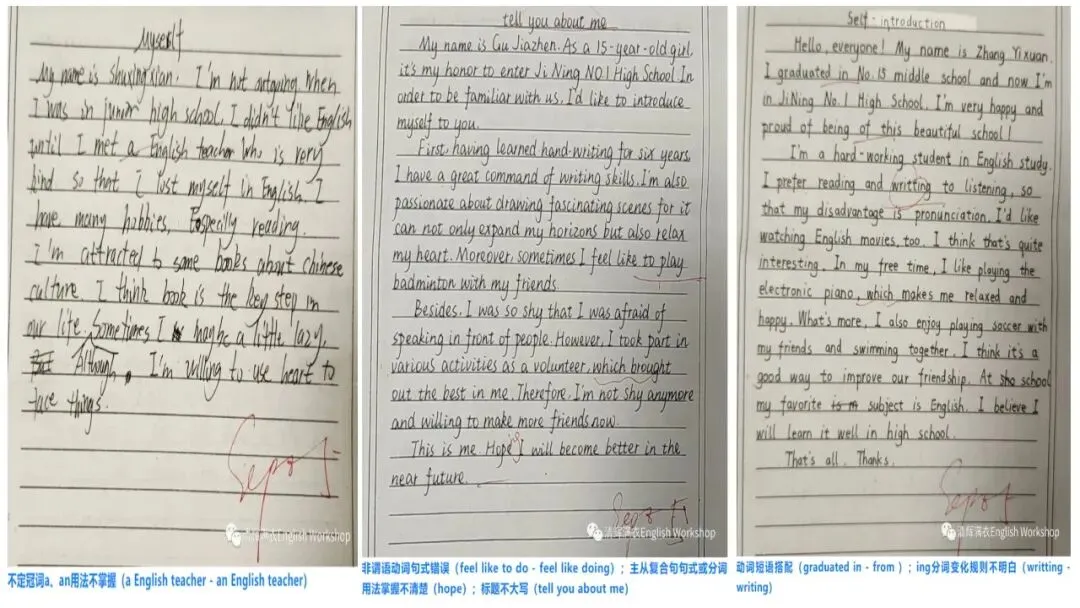 Myself
My name is Shuxingxian. I'm not outgoing when
I was in junior high school. I didn't like English
until I met a English teacher who is very
kind so that I lost myself in English. I
have many hobbies, Especially reading.
I'm attracted to some books about chinese
culture. I think book is the key step in
our life. Sometimes I maybe a little lazy,
Although, I'm willing to use heart to
face things.
Sep 5
清辉满衣English Workshop
不定冠词a、an用法不掌握（a English teacher - an English teacher）
tell you about me
My name is Gu Jiazhen. As a 15-year-old girl,
it's my honor to enter Ji Ning NO.1 High School. In
order to be familiar with us, I'd like to introduce
myself to you.
First, having learned hand-writing for six years,
I have a great command of writing skills. I'm also
passionate about drawing fascinating scenes for it
can not only expand my horizons but also relax
my heart. Moreover, sometimes I feel like to play
badminton with my friends.
Besides, I was so shy that I was afraid of
speaking in front of people. However, I took part in
various activities as a volunteer, which brought
out the best in me. Therefore, I'm not shy anymore
and willing to make more friends now.
This is me. Hope I will become better in the
ing
near future.
Sep 5
清辉满衣English Workshop
非谓语动词句式错误（feel like to do - feel like doing）；主从复合句句式或分词
用法掌握不清楚（hope）；标题不大写（tell you about me）
Self-introduction
Hello, everyone! My name is Zhang Yixuan.
I graduated in No.15 middle school and now I'm
in JiNing No.1 High School. I'm very happy and
proud of being of this beautiful school!
I'm a hard-working student in English study.
I prefer reading and writting to listening, so
that my disadvantage is pronunciation. I'd like
watching English movies, too. I think that's quite
interesting. In my free time, I like playing the
electronic piano, which makes me relaxed and
happy. What's more, I also enjoy playing soccer with
my friends and swimming together. I think it's a
good way to improve our friendship. At school
my favorite subject is English. I believe I
will learn it well in high school.
That's all. Thanks.
Sep 5
清辉满衣English Workshop
动词短语搭配（graduated in - from ）；ing分词变化规则不明白（writting -
writing）